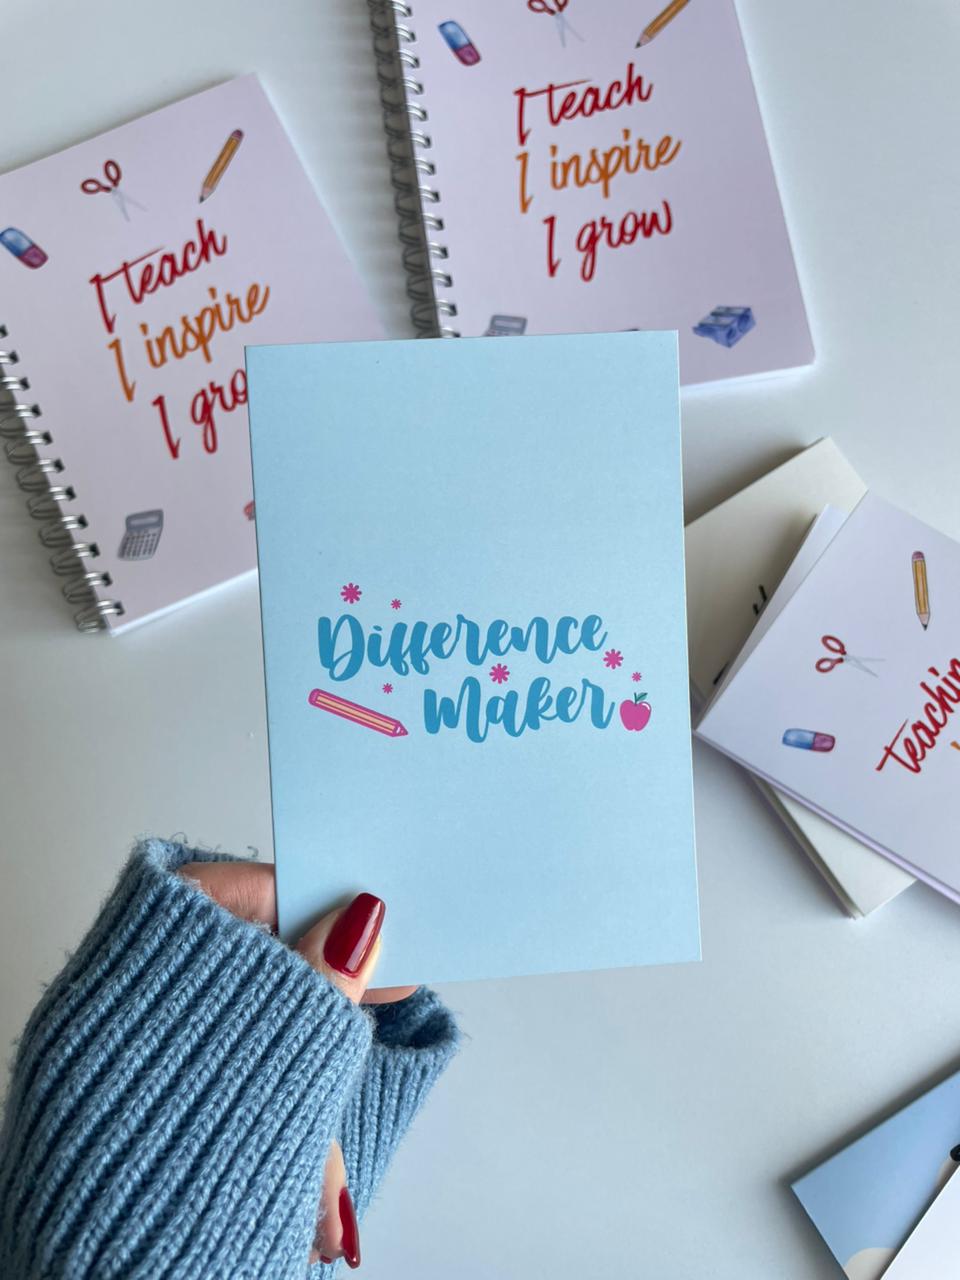 I teach
I inspire
I grow
I teach
I inspire
I gro
Difference
Maker